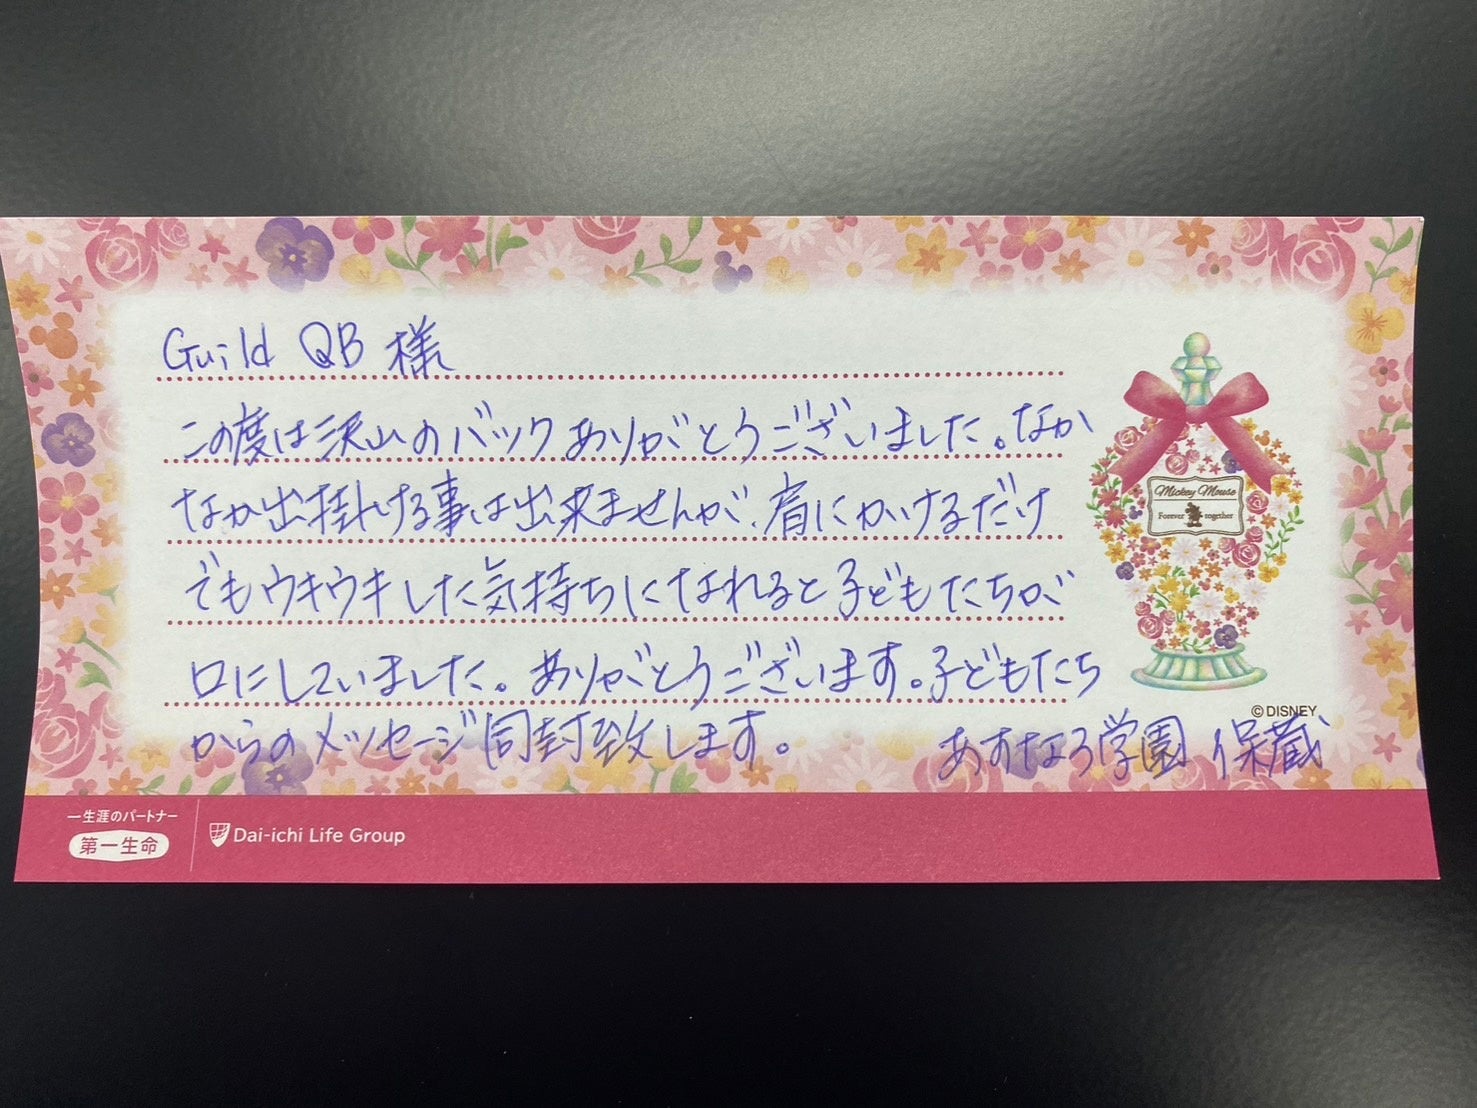 Guild QB 様
この度は沢山のバックありがとうございました。なか
なか出掛ける事は出来ませんが、肩にかけるだけ
でもウキウキした気持ちになれると子どもたちが
口にしていました。ありがとうございます。子どもたち
からのメッセージ同封致します。
あすなろ学園 保蔵
Mickey Mouse
Forever together
©DISNEY
一生涯のパートナー
第一生命
Dai-ichi Life Group